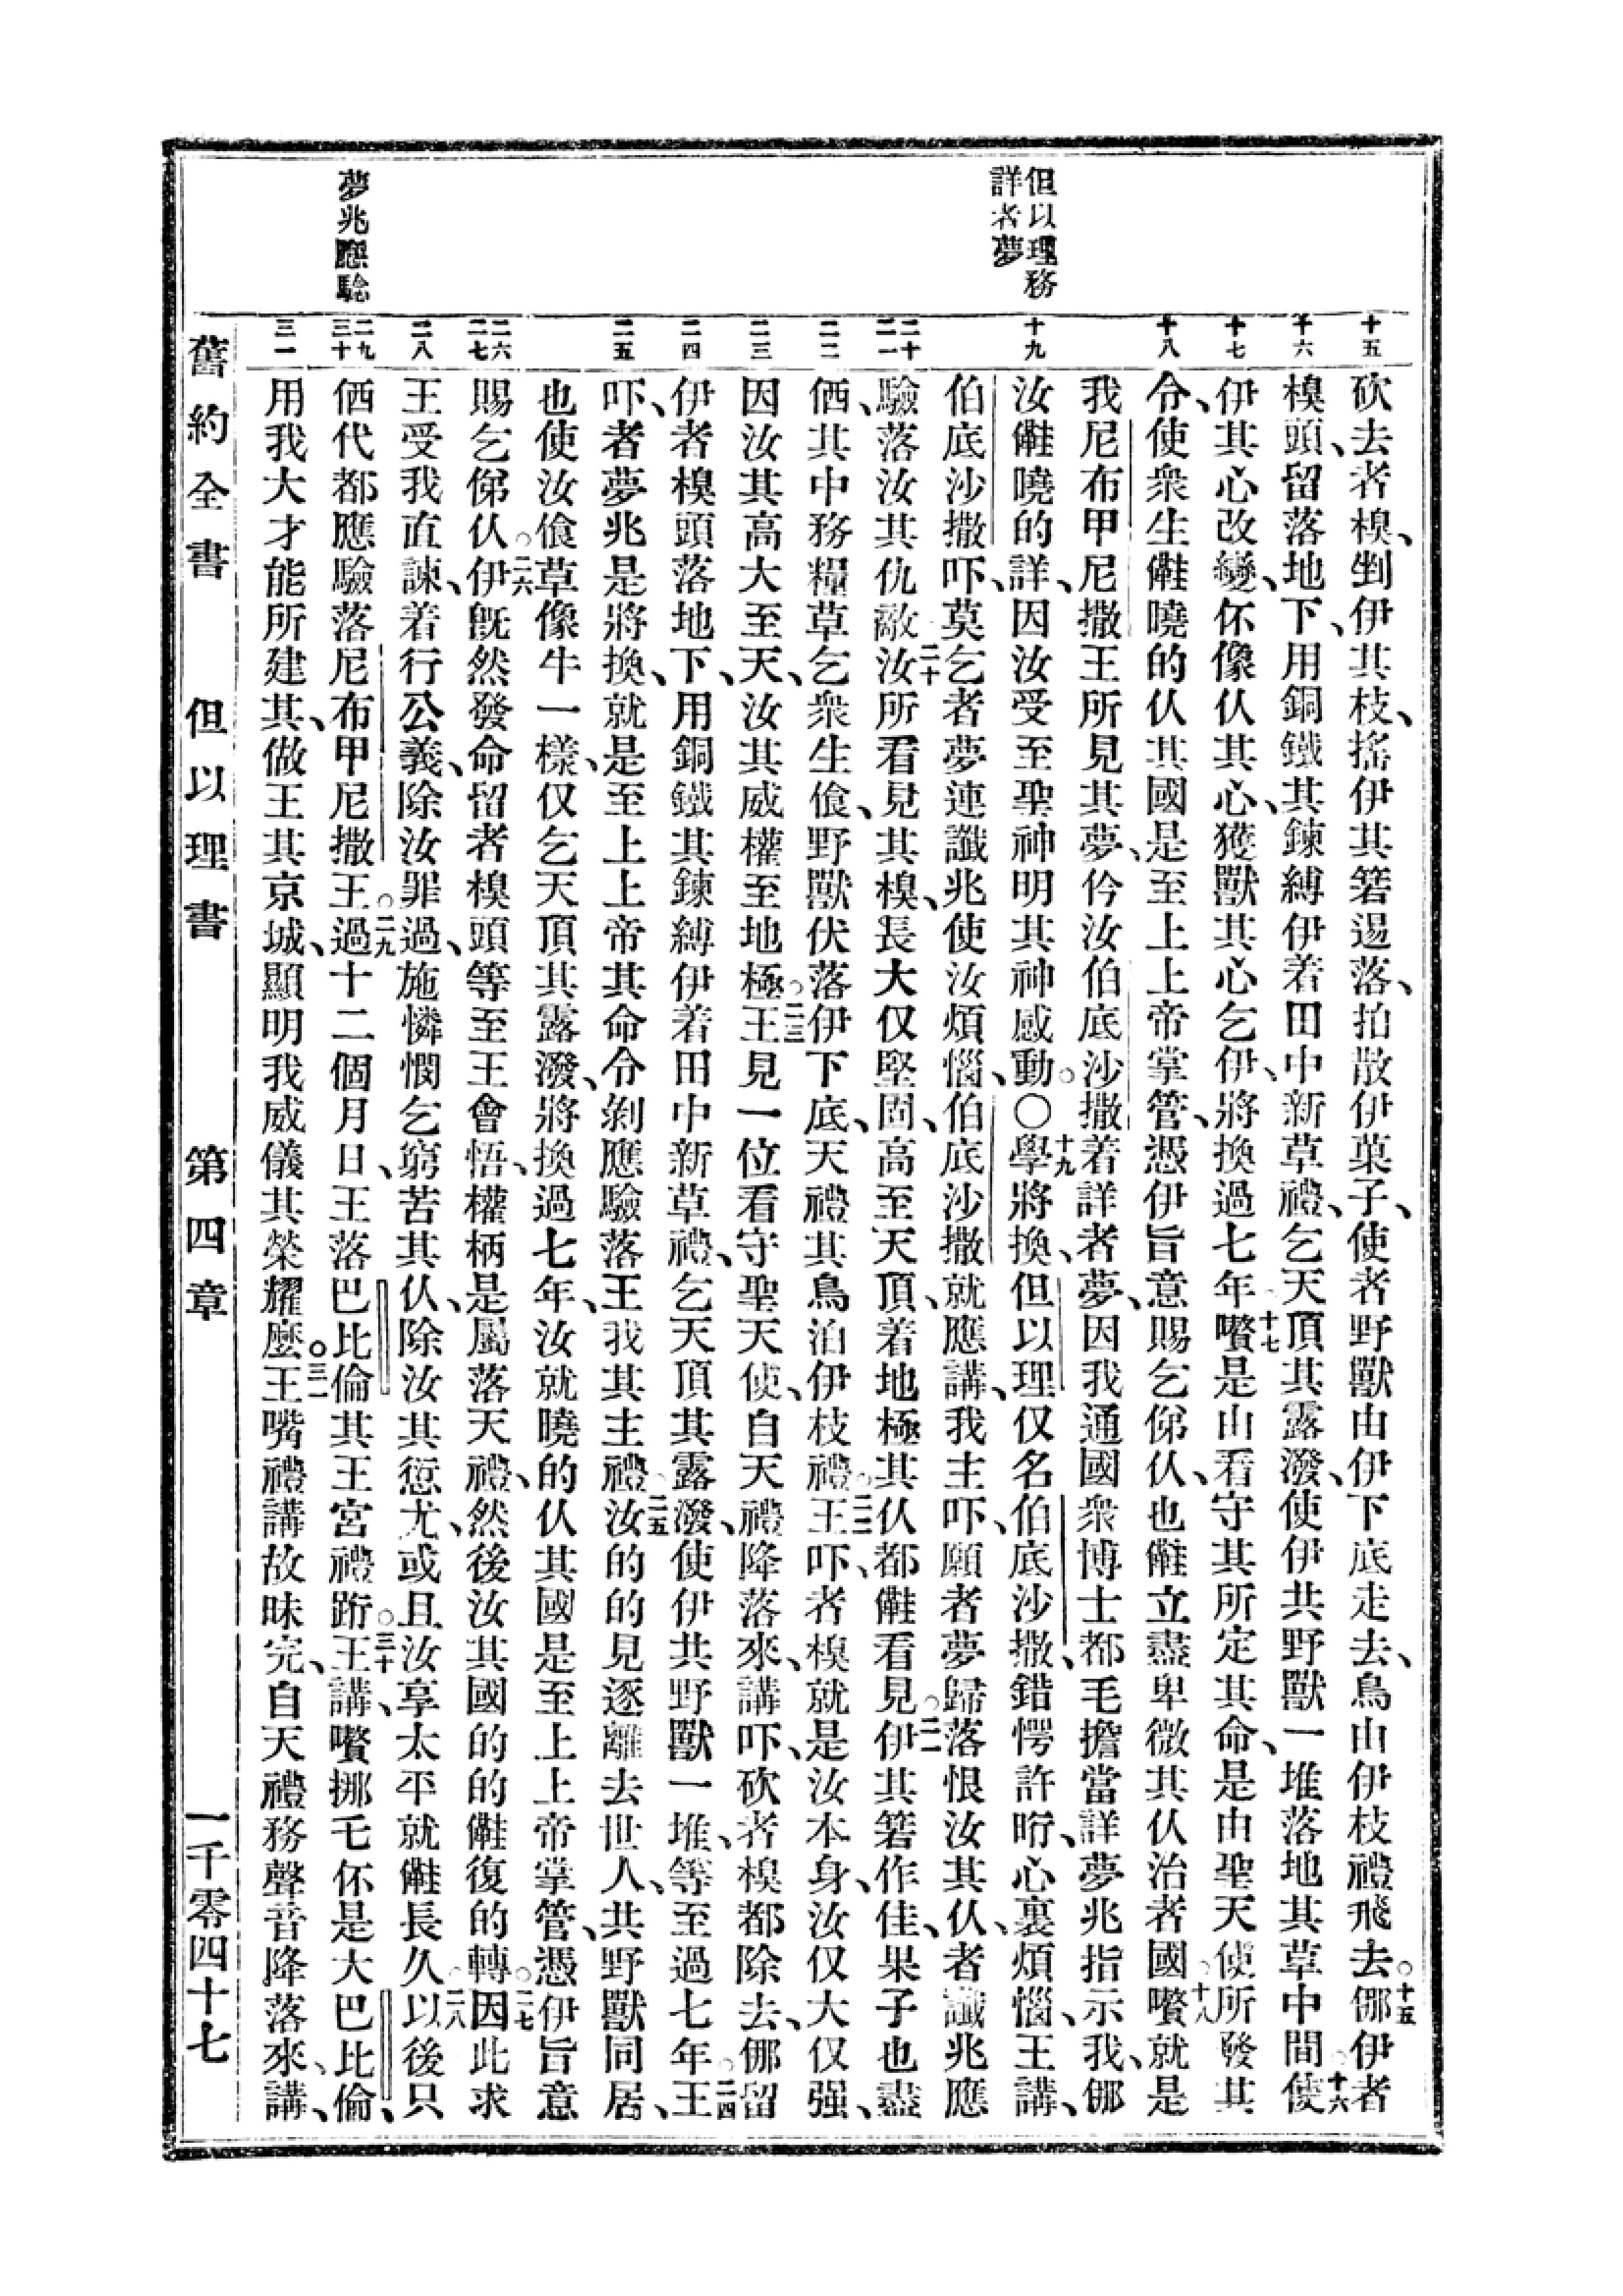 但以理務
詳者夢
夢兆應驗
十五
十六
十七
十八
十九
二十
二一
二二
二三
二四
二五
二六
二七
二八
二九
三十
三一
砍去者樹、剉伊其枝、搖伊其箬逿落、拍散伊菓子、使者野獸由伊下底走去、鳥由伊枝禮飛去。十五㑚伊者
樹頭、留落地下、用銅鐵其鍊縛伊着田中新草禮、乞天頂其露潑、使伊共野獸一堆落地其草中間。十六使
伊其心改變、伓像仈其心、獲獸其心乞伊、將換過七年。十七嚽是由看守其所定其命、是由聖天使所發其
令、使衆生㒰曉的仈其國、是至上上帝掌管、憑伊旨意、賜乞俤仈、也㒰立盡卑微其仈治者國。十八嚽就是
我尼布甲尼撒王所見其夢、仱汝伯底沙撒着詳者夢、因我通國衆博士都毛擔當詳夢兆指示我、㑚
汝㒰曉的詳、因汝受至聖神明其神感動。〇十九學將換、但以理仅名伯底沙撒、錯愕許晌、心裏煩惱、王講、
伯底沙撒吓、莫乞者夢連讖兆使汝煩惱、伯底沙撒就應講、我主吓、願者夢歸落恨汝其仈、者讖兆應
驗落汝其仇敵。二十汝所看見其樹、長大仅堅固、高至天頂、着地極其仈都㒰看見。二一伊其箬作佳、果子也盡
㑚、其中務糧草乞衆生飡、野獸伏落伊下底、天禮其鳥泊伊枝禮。二二王吓、者樹就是汝本身、汝仅大仅强、
因汝其高大至天、汝其威權至地極。二三王見一位看守聖天使、自天禮降落來、講吓、砍者樹都除去、㑚留
伊者樹頭落地下、用銅鐵其鍊縛伊着田中新草禮、乞天頂其露潑、使伊共野獸一堆、等至過七年。二四王
吓、者夢兆是將換、就是至上上帝其命令、剝應驗落王我其主禮。二五汝的的見逐離去世人、共野獸同居、
也使汝飡草像牛一樣、仅乞天頂其露潑、將換過七年、汝就曉的仈其國是至上上帝掌管、憑伊旨意
賜乞俤仈。二六伊旣然發命留者樹頭、等至王會悟、權柄是屬落天禮、然後汝其國的的㒰復的轉。二七因此求
王受我直諫、着行公義、除汝罪過、施憐憫乞窮苦其仈、除汝其愆尤、或且汝享太平就㒰長久。二八以後只
㑚代都應驗落尼布甲尼撒王。二九過十二個月日、王落巴比倫其王宮禮跮。三十王講、嚽挪毛伓是大巴比倫、
用我大才能所建其、做王其京城、顯明我威儀其榮耀麽。三一王嘴禮講故昧完、自天禮務聲音降落來、講、
舊約全書　但以理書　第四章　一千零四十七